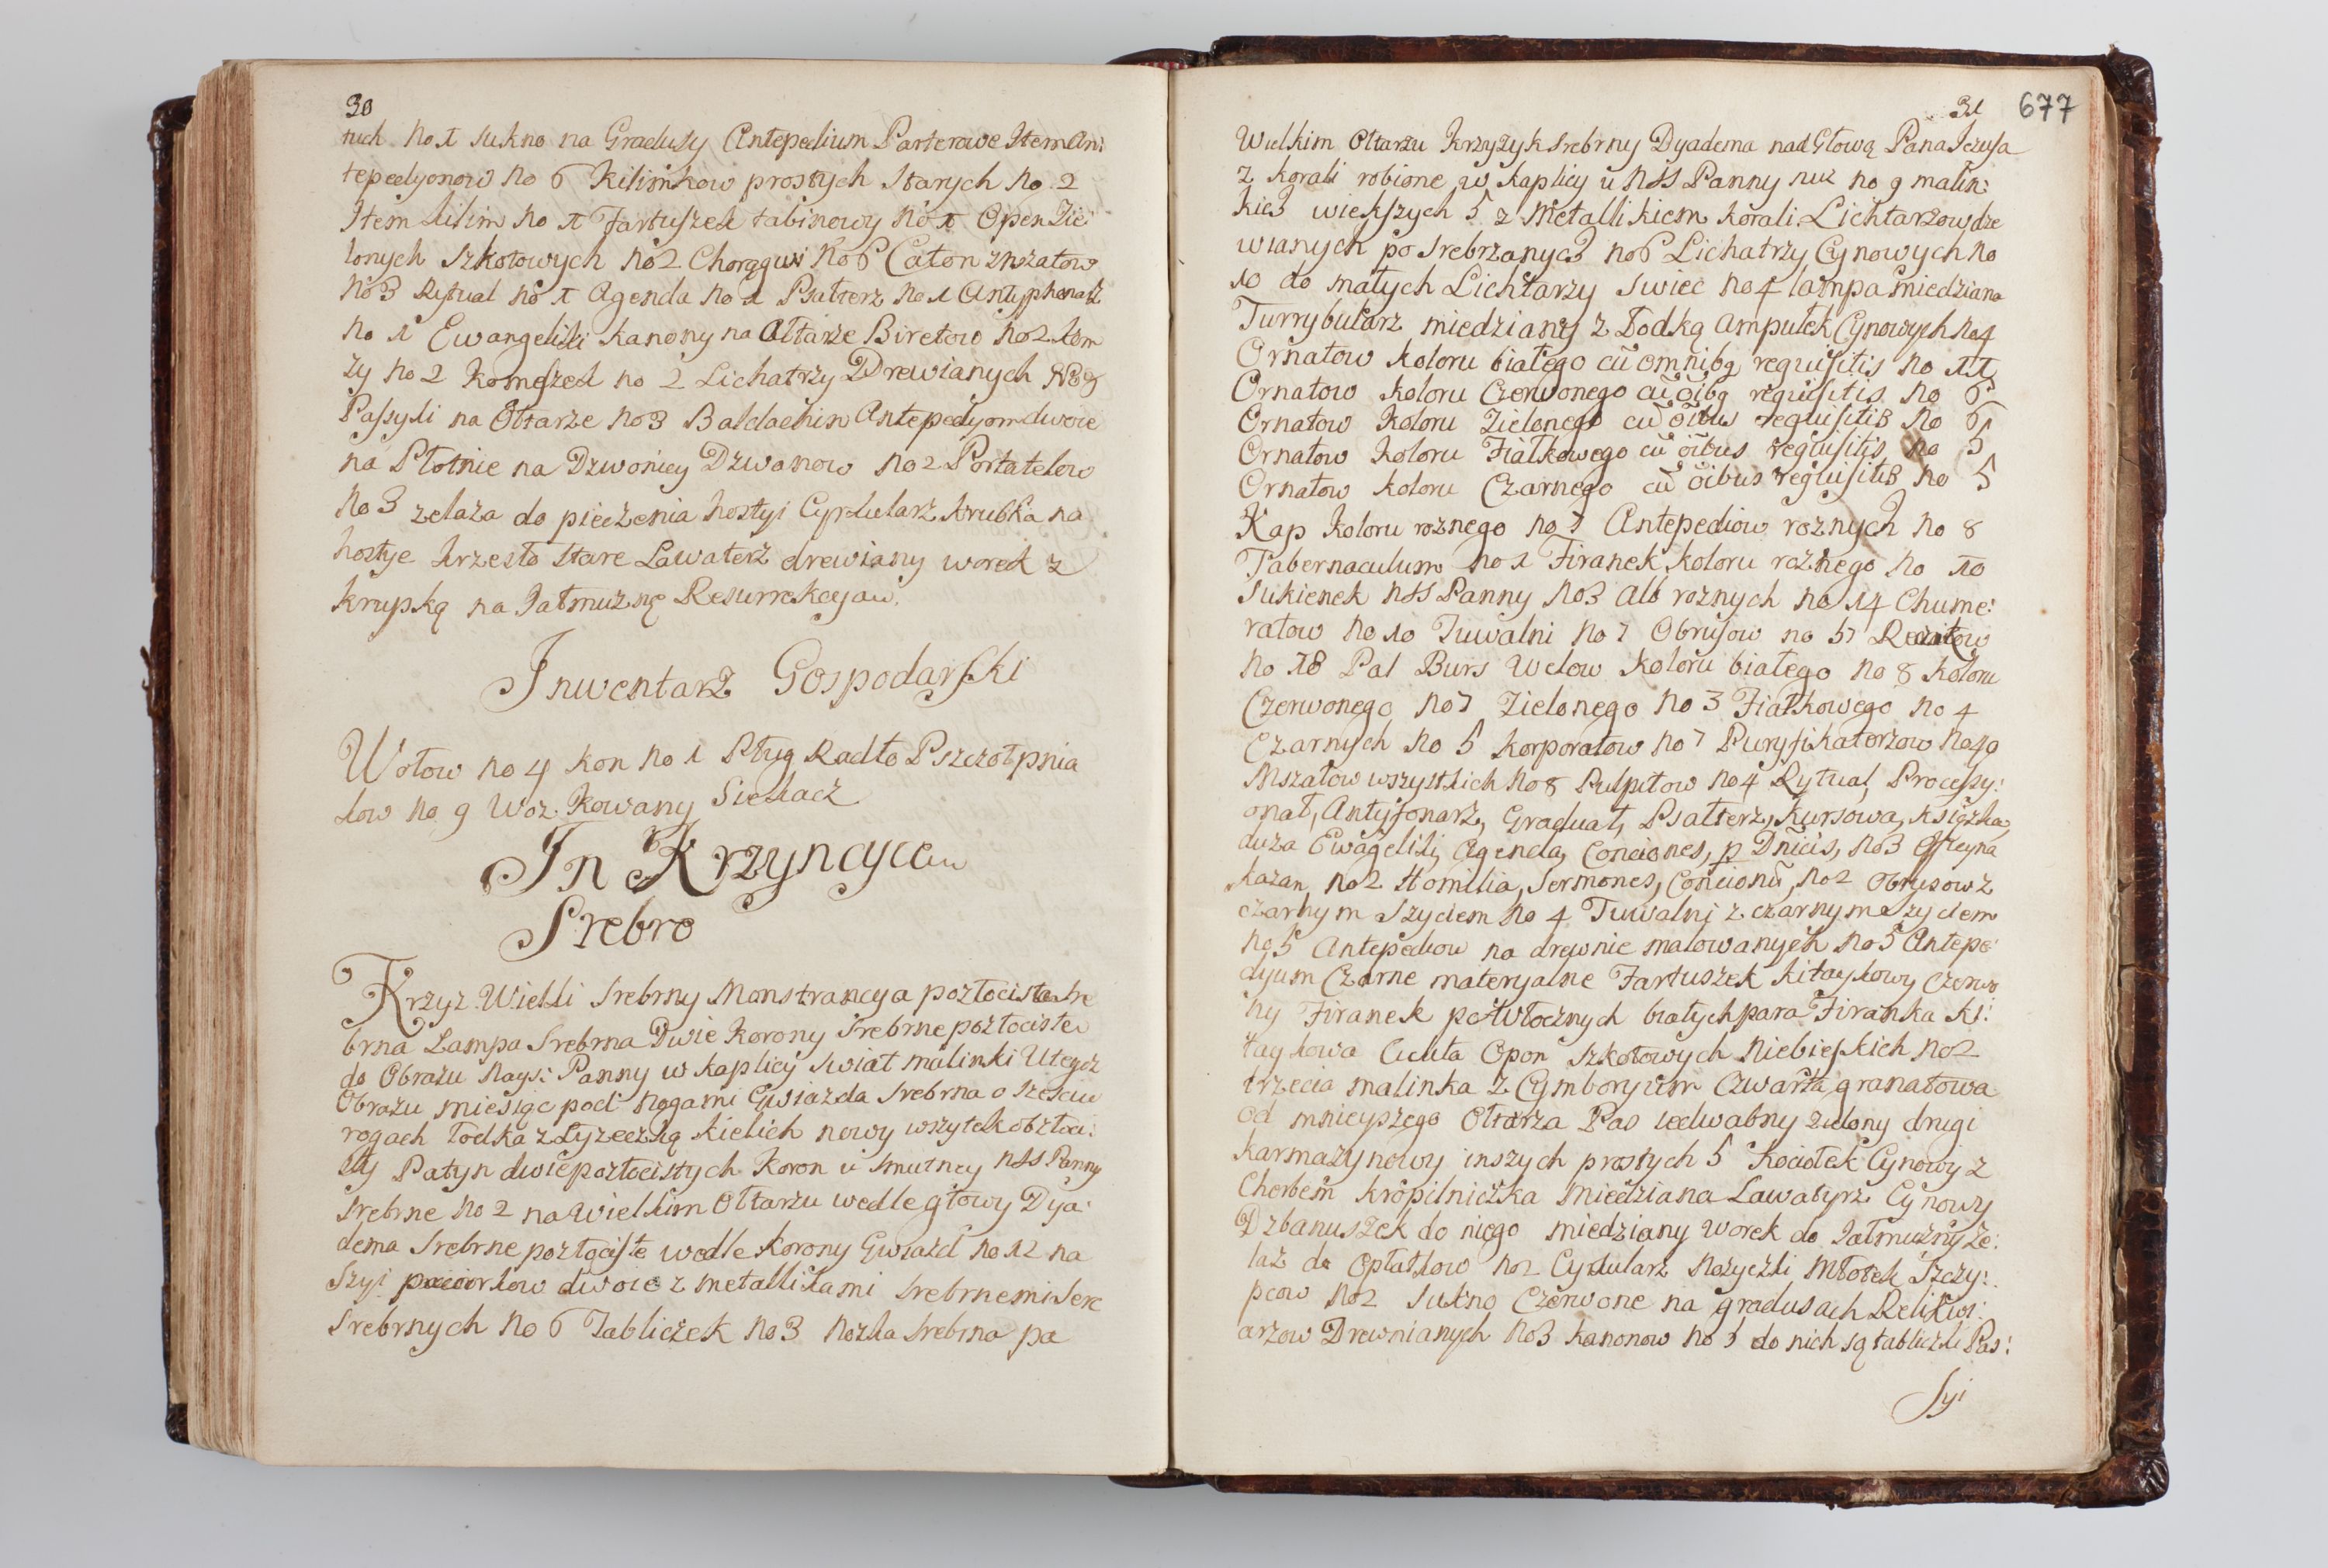 30
tuch No 1 sukno na Gradusy Antepedium Parterowe Item An:
tepedyonow No 6 Kilimkow prostych Starych No 2
Item kilim No 1 Fartuszek tabinowy No 1 Opon Zie
lonych Szkotowych No 2 Chorągwi No 6 Caton mszałow
No 3 Rytual No 1 Agenda No 1 Psałterz No 1 Antyphonarz
No 1 Ewangeliski Kanony na Ołtarze Biretow No 2 Kom
zy No 2 Komszek no 2 Lichatrzy Drewianych No 8
Passyki na Ołtarze No 3 Baldachin Antepedyom dwoie
na Płotnie na Dzwonicy Dzwonow No 2 Portatelow
No 3 zelaza do pieczenia hostyi Cyrkularz krubka na
hostye krzesło stare Lawaterz drewiany worek z
krupką na Jałmużnę Resurrekcyau.
Inwentarz Gospodarski
Wołow no 4 kon No 1 Pług Radło Pszczoł pnia
kow No 9 Woz Kowany Siekacz
In Krzyncycau
Srebro
Krzyz Wielki Srebrny Monstrancya pozłocista Sre
brna Lampa Srebrna Dwie Korony Srebrne pozłociste
do Obrazu Nays: Panny w kaplicy Swiat malinki U tegoz
Obrazu miesiąc pod Nogami Gwiazda Srebrna o szesciu
rogach Łodka z Łyzeczką kielich nowy wszytek obzłoci:
sty Patyn dwie pozłocistych Koron u Smutney NSS Panny
Srebrne No 2 na Wielkim Ołtarzu wedle głowy Dya:
dema Srebrne pozłociste wedle korony Gwiazd No 12 na
Szyi paciorkow dwoie z metallikami Srebrnemi Serc
Srebrnych No 6 Tabliczek No 3 Nozka Srebrna pa
31 677
Wielkim Ołtarzu Krzyżyk Srebrny Dyadema nad Głową Pana Jezusa
z korali robione w kaplicy u NSS Panny nur no 9 malin:
kich wiekszych 5 z Metallikiem korali Lichtarzow dre
wianych po Srebrzanych no 6 Lichatrzy Cynowych No
10 do małych Lichtarzy swiec no 4 lampa miedziana
Turrybularz miedziany z Łodką ampułek Cynowych No 4
Ornatow koloru białego cū omnibq requisitis no 11
Ornatow koloru Czerwonego cū oibq requisitis No 6
Ornatow koloru Zielonego cū oibus requisitis No 6
Ornatow koloru Fiałkowego cū oibus requisitis No 5
Ornatow koloru Czarnego cū oibus requisitis No 5
Kap koloru roznego no 7 Antepediow roznych No 8
Tabernaculum no 1 Firanek koloru roznego No 10
Sukienek NSS Panny No 3 Alb roznych no 14 Chume:
rałow No 10 Tuwalni No 7 Obrusow no 57
No 18 Pal Burs Welow koloru białego no 8 koloru
Czerwonego no 7 Zielonego No 3 Fiałkowego No 4
Czarnych No 5 Korporałow no 7 Puryfikatorzow No 40
Mszałow wszystkich No 8 Pulpitow no 4 Rytual, Processy:
onał, Antyfonarz, Graduał, Psałterz, Kursowa, ksiązka
duza Ewagelisti, Agenda, Conciones, p Dnicis, No 3
kazan, no 2 Homilia, Sermones, Concionū, No 2 Obrusow z
czarnym szyciem No 4 Tuwalni z czarnym szyciem
No 5 Antepediow na drewnie malowanych No 5 Antepe:
dyum Czarne materyalne Fartuszek kitaykowy Czerwo
ny Firanek połtłocznych białych para Firanka ki:
taykowa Opon Szkotowych Niebieskich No 2
trzecia malinka z Cymboryum Czwarta granatowa
od mnieyszego Ołtarza Pas iedwabny zielony drugi
karmazynowy inszych prostych 5 Kociołek Cynowy z
Cherbem kropilniczka miedziana Lawatyrz Cynowy
Dzbanuszek do niego miedziany Worek do Jałmużny Ze:
laz do Opłatkow No 2 Cyrkularz Nożyczki Młotek Szczy:
pcow No 2 Sukno Czerwone na gradusach Relikwi:
arzow Drewnianych No 3 kanonow No 3 do nich są tabliczki Pas:
Syi